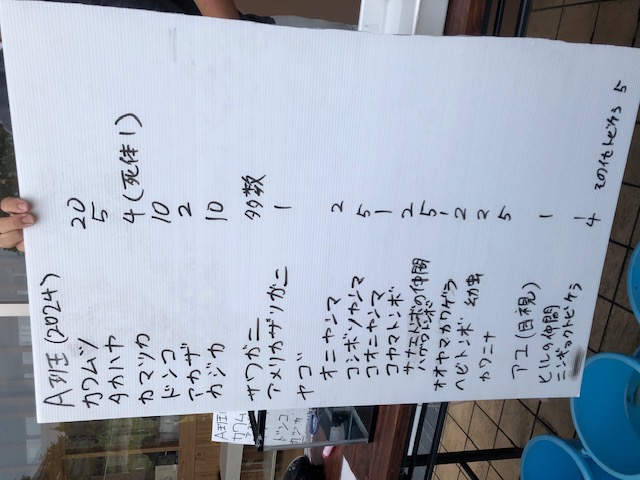 A班(2024)
カワムツ 20
タカハヤ 5
カマツカ 4(死体1)
ドンコ 10
アカザ 2
カジカ 10
サワガニ 多数
アメリカザリガニ 1
ヤゴ
オニヤンマ 2
コシボソヤンマ 5
コオニヤンマ 1
コヤマトンボ 2
サナエトンボの仲間 5
ハグロトンボ 1
オオヤマカワゲラ 2
ヘビトンボ 幼虫 2
カワニナ 5
アユ(目視) 1
ヒルの仲間 1
ニンギョウトビケラ 4 その他トビケラ 5
A班
カワム
ドンコ